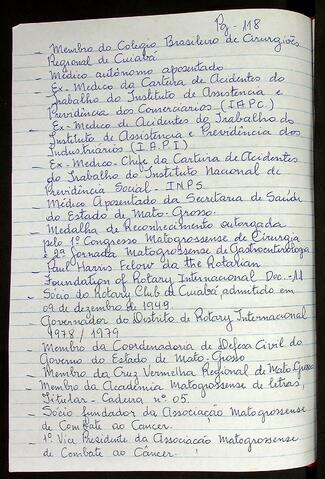 Pg - 118
- Membro do Colegio Brasileiro de Cirurgiões
Regional de Cuiabá
- Médico autônomo aposentado
- Ex-Medico da Cartura de Acidentes do
Trabalho do Instituto de Assistencia e
Previdência dos Comerciarios (IAPC)
- Ex-Medico de Acidentes do Trabalho do
Instituto de Assistência e Previdência dos
Industriários (I.A.P.I)
- Ex-Medico-Chefe da Cartura de Acidentes
do Trabalho do Instituto Nacional de
Previdência Social - INPS.
- Médico Aposentado da Secretaria de Saúde
do Estado de Mato-Grosso.
- Medalha de Reconhecimento outorgada
pelo 1º Congresso Matogrossense de Cirurgia
e 2ª Jornada Matogrossense de Gastroenterologia
- Paul Harris Felow da the Rotarian
Foundation of Rotary Internacional Dec.-11
- Sócio do Rotary Club de Cuiabá, admitido em
09 de dezembro de 1949
- Governador do Distrito de Rotary Internacional
1978/1979
- Membro da Coordenadoria de Defesa Civil do
Governo do Estado de Mato-Grosso
- Membro da Cruz Vermelha Regional de Mato-Grosso
- Membro da Academia Matogrossense de letras,
Titular - Cadeira nº 05.
- Sócio fundador da Associação Matogrossense
de Combate ao Cancer.
- 1º Vice Presidente da Associação Matogrossense
de Combate ao Câncer.